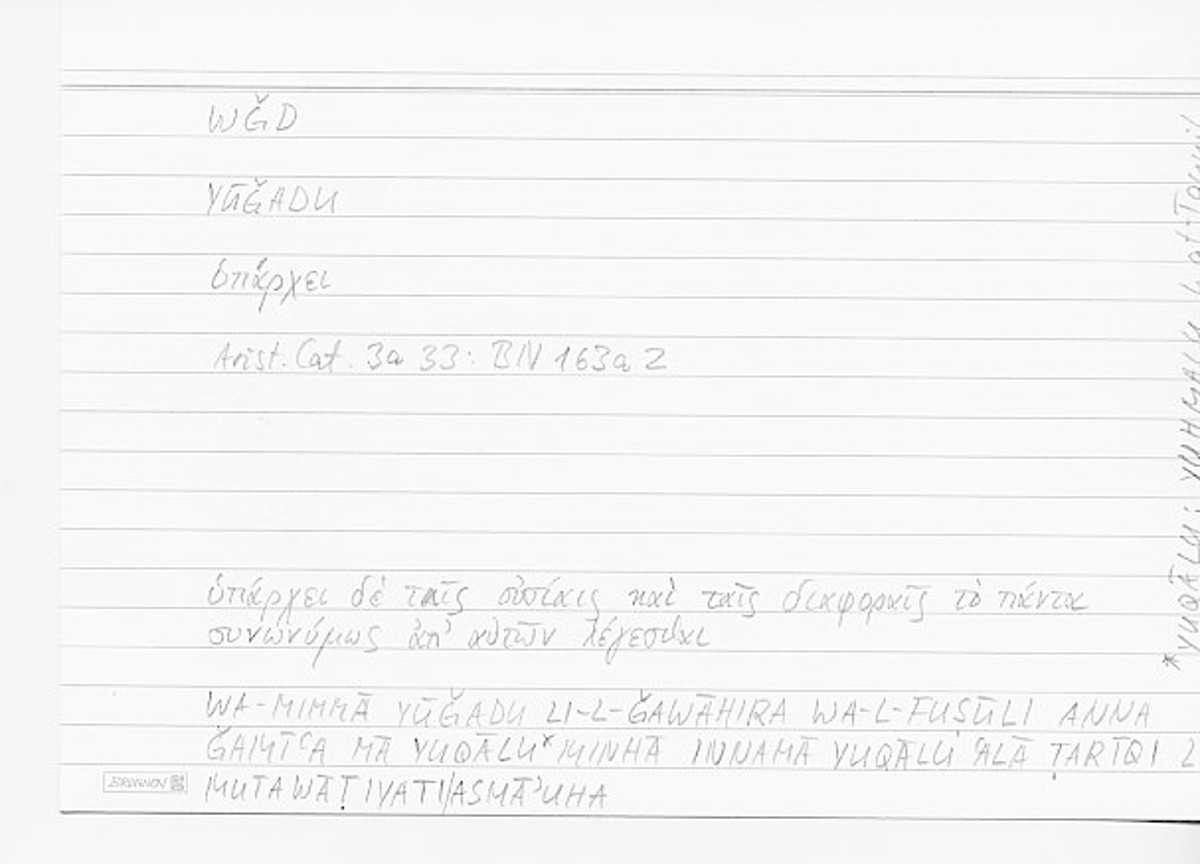 WĞD
YŪĞADU
ὑπάρχει
Arist. Cat. 3a 33: BN 163a 2
ὑπάρχει δὲ ταῖς οὐσίαις καὶ ταῖς διαφοραῖς τὸ πάντα
συνωνύμως ἀπ' αὐτῶν λέγεσθαι
WA-MIMMĀ YŪĞADU LI-L-ĞAWĀHIRA WA-L-FUṢŪLI ANNA
ĞAMĪʿA MĀ YUQĀLU* MINHĀ INNAMĀ YUQĀLU ʿALĀ ṬARĪQI L
MUTAWĀṬIYATI/ASMĀʾUHA
*YUQĀLU: YUḤMALU